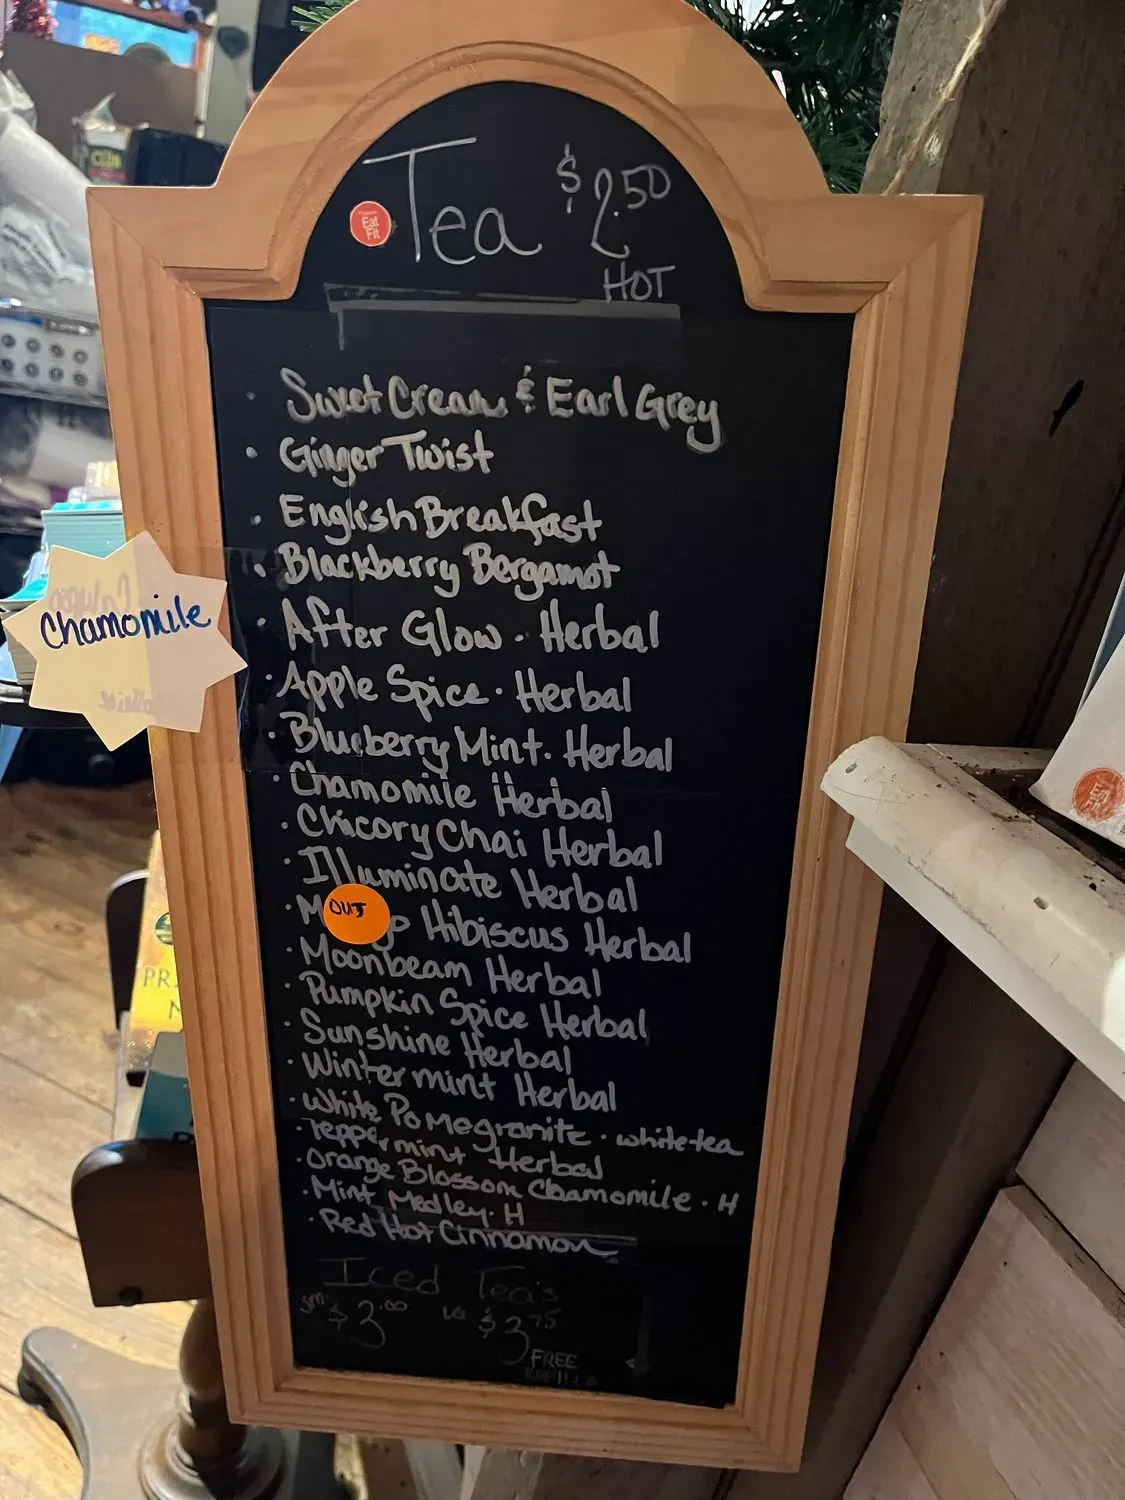 Tea $2.50
Eat Fit
HOT
Sweet Cream & Earl Grey
Ginger Twist
English Breakfast
Blackberry Bergamot
After Glow . Herbal
Apple Spice . Herbal
Blueberry Mint . Herbal
Chamomile
Chamomile Herbal
Chicory Chai Herbal
Illuminate Herbal
OUT
Hibiscus Herbal
Moonbeam Herbal
Pumpkin Spice Herbal
Sunshine Herbal
Wintermint Herbal
White Pomegranite . white tea
Peppermint Herbal
Orange Blossom Chamomile . H
Mint Medley . H
Red Hot Cinnamon
Iced Tea's
sm $3.00 LG $3.75
FREE